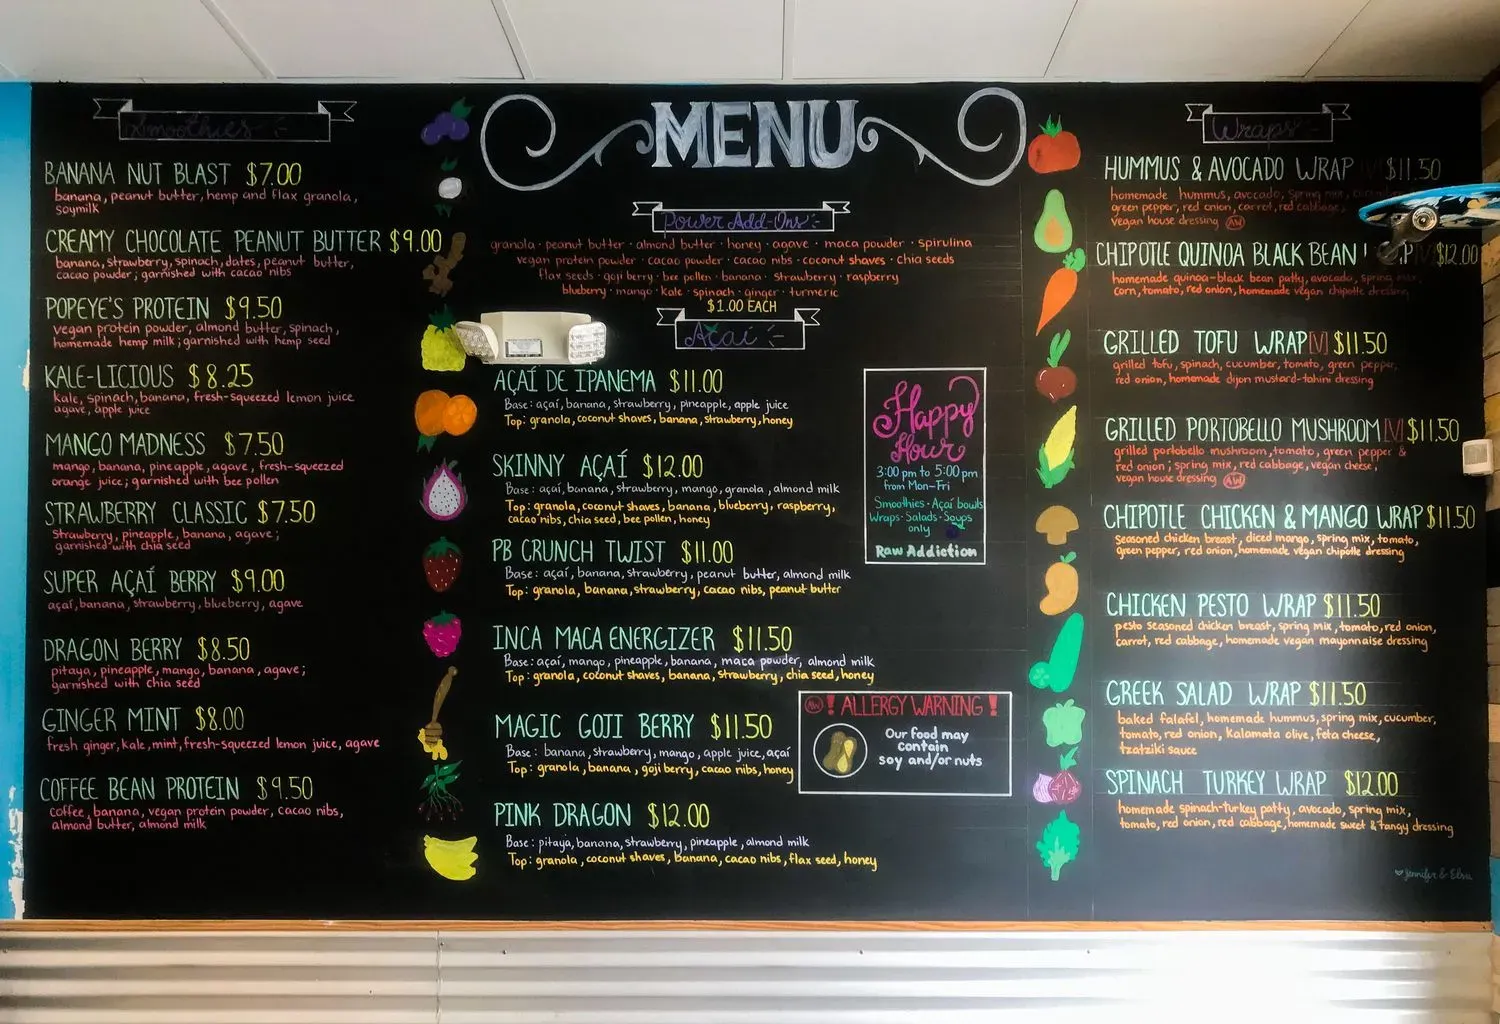 Smoothies
BANANA NUT BLAST $7.00
banana, peanut butter, hemp and flax granola,
soymilk
CREAMY CHOCOLATE PEANUT BUTTER $9.00
banana, strawberry, spinach, dates, peanut butter,
cacao powder; garnished with cacao nibs
POPEYE'S PROTEIN $9.50
vegan protein powder, almond butter, spinach,
homemade hemp milk; garnished with hemp seed
KALE-LICIOUS $8.25
kale, spinach, banana, fresh-squeezed lemon juice
agave, apple juice
MANGO MADNESS $7.50
mango, banana, pineapple, agave, fresh-squeezed
orange juice; garnished with bee pollen
STRAWBERRY CLASSIC $7.50
Strawberry, pineapple, banana, agave;
garnished with chia seed
SUPER AÇAÍ BERRY $9.00
açaí, banana, strawberry, blueberry, agave
DRAGON BERRY $8.50
pitaya, pineapple, mango, banana, agave;
garnished with chia seed
GINGER MINT $8.00
fresh ginger, kale, mint, fresh-squeezed lemon juice, agave
COFFEE BEAN PROTEIN $9.50
coffee, banana, vegan protein powder, cacao nibs,
almond butter, almond milk
MENU
Power Add-Ons
granola · peanut butter · almond butter · honey · agave · maca powder · spirulina
vegan protein powder · cacao powder · cacao nibs · coconut shaves · chia seeds
flax seeds · goji berry · bee pollen · banana · strawberry · raspberry
blueberry · mango · kale · spinach · ginger · turmeric
$1.00 EACH
Açaí
AÇAÍ DE IPANEMA $11.00
Base: açaí, banana, strawberry, pineapple, apple juice
Top: granola, coconut shaves, banana, strawberry, honey
SKINNY AÇAÍ $12.00
Base: açaí, banana, strawberry, mango, granola, almond milk
Top: granola, coconut shaves, banana, blueberry, raspberry,
cacao nibs, chia seed, bee pollen, honey
PB CRUNCH TWIST $11.00
Base: açaí, banana, strawberry, peanut butter, almond milk
Top: granola, banana, strawberry, cacao nibs, peanut butter
INCA MACA ENERGIZER $11.50
Base: açaí, mango, pineapple, banana, maca powder, almond milk
Top: granola, coconut shaves, banana, strawberry, chia seed, honey
MAGIC GOJI BERRY $11.50
Base: banana, strawberry, mango, apple juice, açaí
Top: granola, banana, goji berry, cacao nibs, honey
PINK DRAGON $12.00
Base: pitaya, banana, strawberry, pineapple, almond milk
Top: granola, coconut shaves, banana, cacao nibs, flax seed, honey
Happy
Hour
3:00 pm to 5:00 pm
from Mon-Fri
Smoothies · Açaí bowls
Wraps · Salads · Soups
only
Raw Addiction
AW ! ALLERGY WARNING !
Our food may
contain
soy and/or nuts
Wraps
HUMMUS & AVOCADO WRAP $11.50
homemade hummus, avocado, spring mix,
green pepper, red onion, carrot, red cabbage,
vegan house dressing AW
CHIPOTLE QUINOA BLACK BEAN $12.00
homemade quinoa-black bean patty, avocado, spring mix,
corn, tomato, red onion, homemade vegan chipotle dressing
GRILLED TOFU WRAP [V] $11.50
grilled tofu, spinach, cucumber, tomato, green pepper,
red onion, homemade dijon mustard-tahini dressing
GRILLED PORTOBELLO MUSHROOM [V] $11.50
grilled portobello mushroom, tomato, green pepper &
red onion; spring mix, red cabbage, vegan cheese,
vegan house dressing AW
CHIPOTLE CHICKEN & MANGO WRAP $11.50
seasoned chicken breast, diced mango, spring mix, tomato,
green pepper, red onion, homemade vegan chipotle dressing
CHICKEN PESTO WRAP $11.50
pesto seasoned chicken breast, spring mix, tomato, red onion,
carrot, red cabbage, homemade vegan mayonnaise dressing
GREEK SALAD WRAP $11.50
baked falafel, homemade hummus, spring mix, cucumber,
tomato, red onion, kalamata olive, feta cheese,
tzatziki sauce
SPINACH TURKEY WRAP $12.00
homemade spinach-turkey patty, avocado, spring mix,
tomato, red onion, red cabbage, homemade sweet & tangy dressing
Jennifer & Elsa